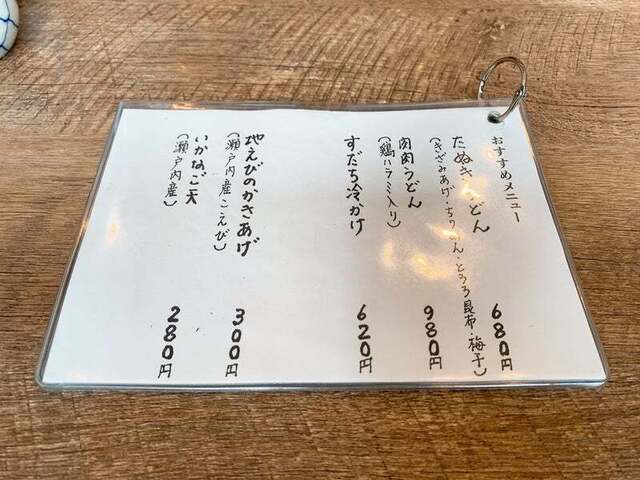 おすすめメニュー
たぬきうどん 680円
(きざみあげ・ちりめん・とろろ昆布・梅干)
肉肉うどん 980円
(鶏ハラミ入り)
すだち冷かけ 620円
地えびのかきあげ 300円
(瀬戸内産こえび)
いかなご天 280円
(瀬戸内産)